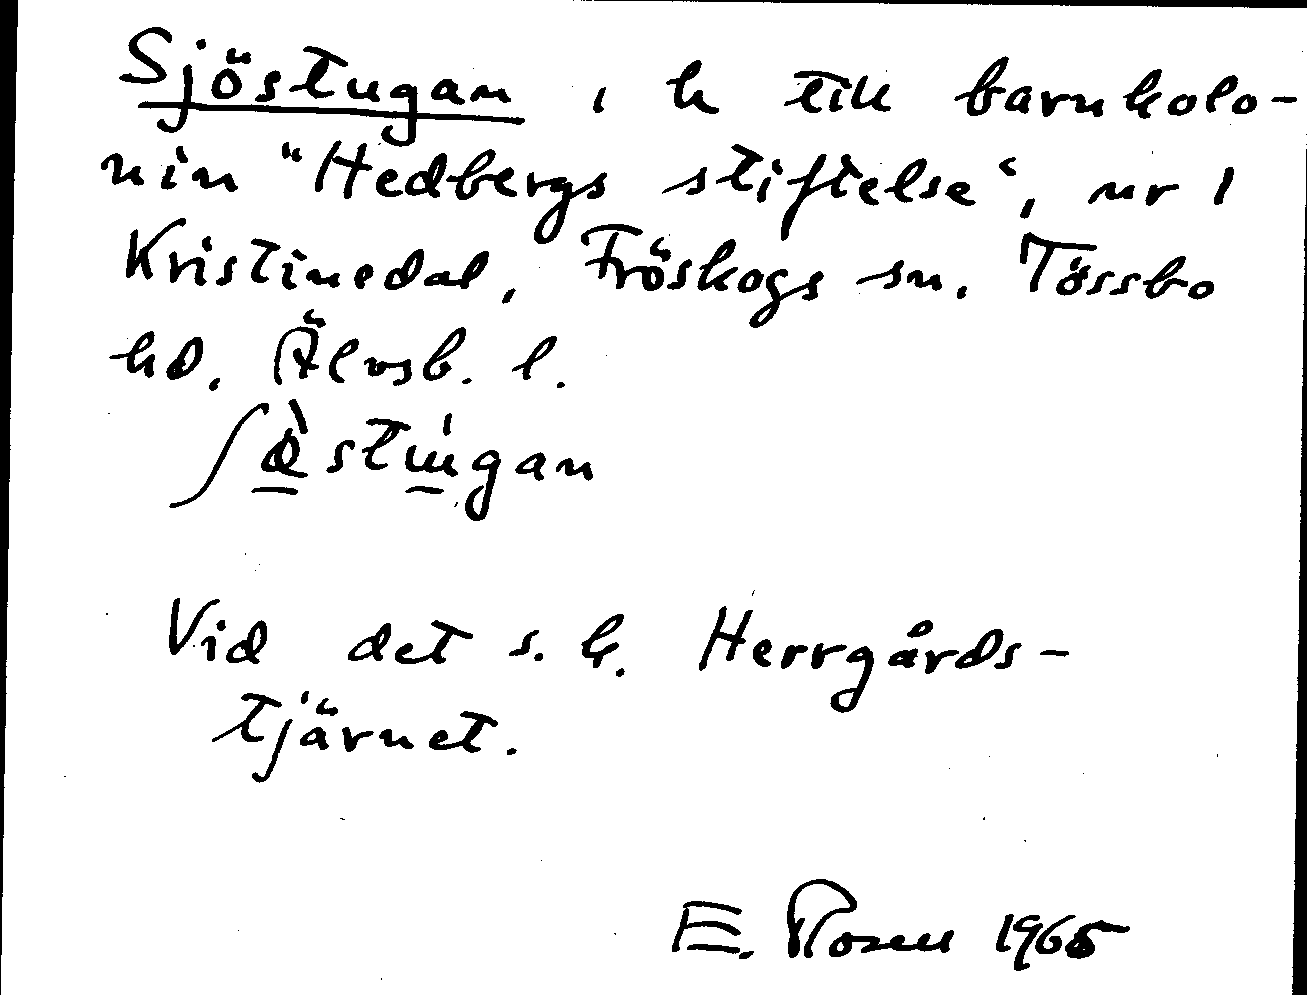 Sjöstugan, h till barnkolo-
nin "Hedbergs stiftelse", nr 1
Kristinedal, Fröskogs sn. Tössbo
hd. Älvsb. l.
Vid det s. k. Herrgårds-
tjärnet.
E. Rosen 1965